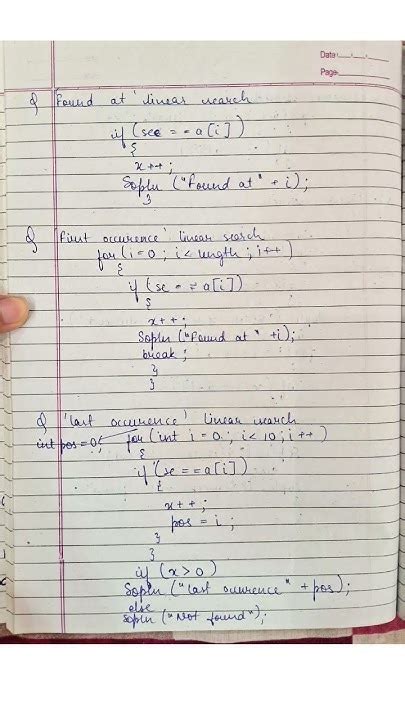 Date:
Page:
Q Found at 'linear search
if (see == a[i])
{
x++;
Sopln ("Found at" + i);
}
Q 'First occurence' linear search
for (i=0 ; i< length ; i++)
{
if (se == a[i])
{
x++;
Sopln ("Found at" +i);
break;
}
}
Q 'Last occurence' linear search
int pos=0; for (int i=0 ; i<10 ; i++)
{
if (se ==a[i])
{
x++;
pos = i ;
}
}
if (x>0)
Sopln ("Last occurence" + pos);
else
Sopln ("Not found");